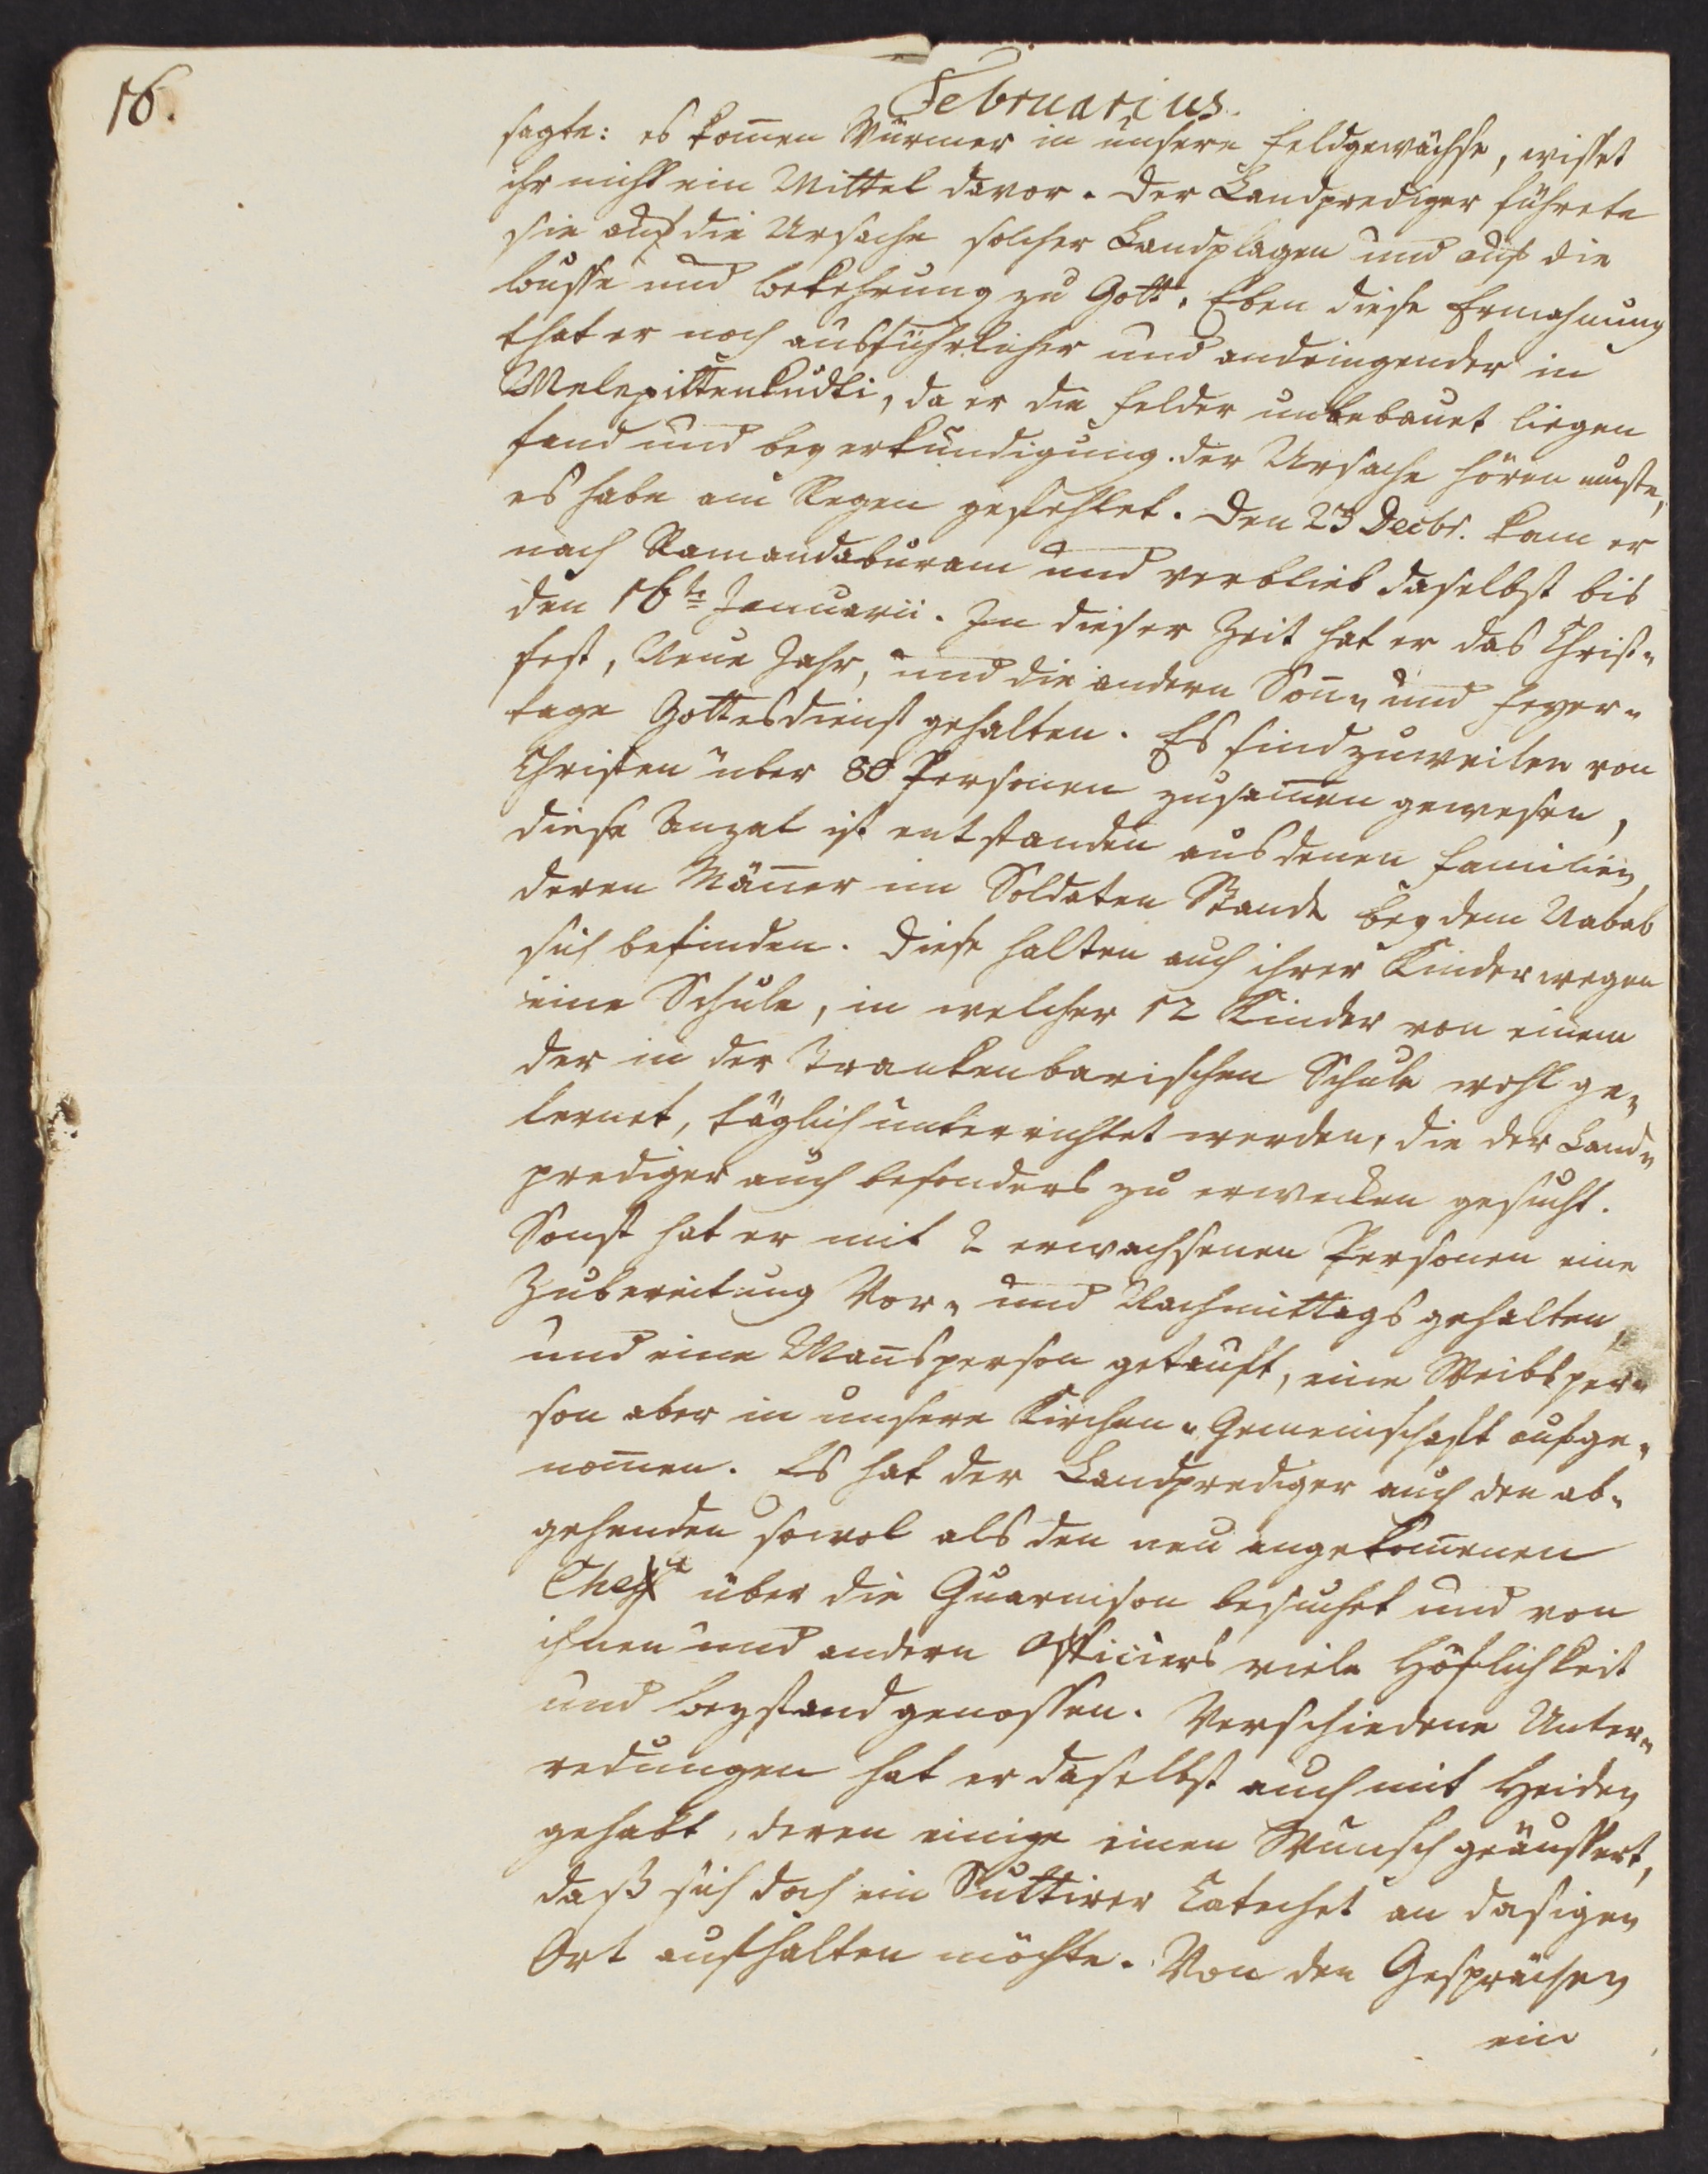 16.
Februarius.
sagte: es kom̄en Würmer in unsere Feldgewächse, wisset
ihr nicht ein Mittel davor. Der Landprediger führete
sie auf die Ursache solcher Landplagen und auf die
busse und bekehrung zu Gott. Eben diese Ermahnung
that er noch ausführlicher und andringender in
Melepittenkudti, da er die Felder unbebauet liegen
fand und bey erkundigung der Ursache hören muste,
es habe am Regen gefehlet. Den 23 Decbr. kam er
nach Ramanadaburam und verblieb daselbst bis
den 16te Januarii. In dieser Zeit hat er das Christ-
fest, Neue Jahr, und die andern Son̄- und Feyer-
tage Gottesdienst gehalten. Es sind zuweilen von
Christen über 80 Personen zusam̄en gewesen,
diese Anzal ist entstanden aus denen Familien,
deren Män̄er im Soldaten Stande bey dem Nabab
sich befinden. Diese halten auch ihrer Kinder wegen
eine Schule, in welcher 12 Kinder von einem
der in der Trankenbarischen Schule wohl ge-
lernet, täglich unterrichtet werden, die der Land-
prediger auch besonders zu erwecken gesucht.
Sonst hat er mit 2 erwachsenen Personen eine
Zubereitung Vor- und Nachmittags gehalten,
und eine Man̄sperson getauft, eine Weibsper-
son aber in unsere Kirchen-Gemeinschaft aufge-
nom̄en. Es hat der Landprediger auch den ab-
gehenden sowol als den neu angekom̄enen
Chef über die Guarnison besuchet und von
ihnen und andern Officiers viele Höflichkeit
und beystand genossen. Verschiedene Unter-
redungen hat er daselbst auch mit Heiden
gehabt, deren einige einen Wunsch geäussert,
daß sich doch ein Suttirer Catechet an dasigen
Ort aufhalten möchte. Von den Gesprächen
ein